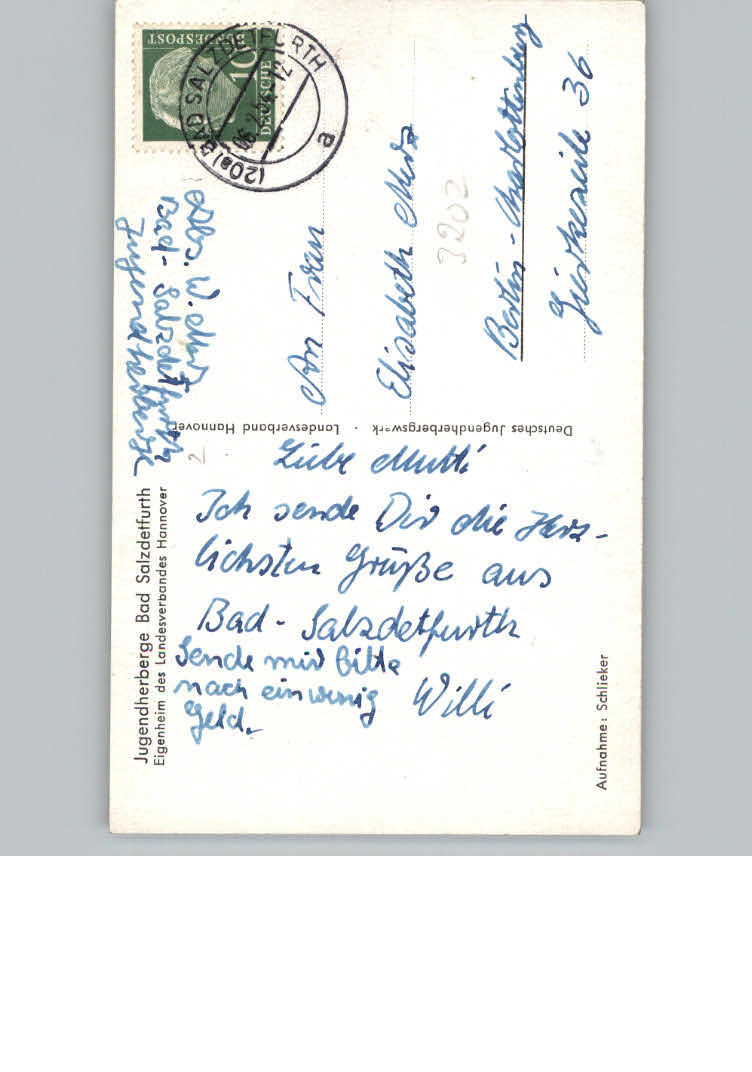 Jugendherberge Bad Salzdetfurth
Eigenheim des Landesverbandes Hannover
Liebe Mutti
Ich sende Dir die Herz-
lichsten Grüße aus
Bad-Salzdetfurth
Willi
Sende mir bitte
nach ein wenig
Geld.
Abs. W.
Bad-Salzdetfurth
Jugendherberge
Deutsches Jugendherbergswerk · Landesverband Hannover
DEUTSCHE
BUNDESPOST
10
(20a) BAD SALZDETFURTH
a
An Frau
Elisabeth
Berlin-Charlottenburg
36
3202
2
Aufnahme: Schlieker